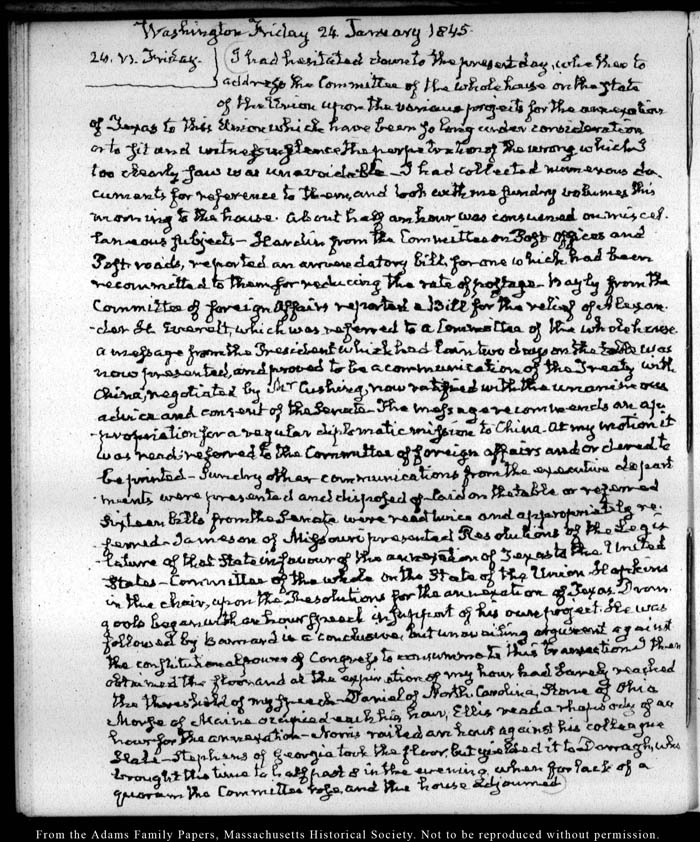 Washington Friday 24 January 1845.
24. VI. Friday. I had hesitated down to the present day, whether to
address the Committee of the whole house on the state
of the Union upon the various projects for the annexation
of Texas to this Union which have been so long under consideration
or to sit and witness in silence the perpetration of the wrong which I
too clearly saw was unavoidable — I had collected numerous do-
cuments for reference to them, and took with me sundry volumes this
morning to the house. About half an hour was consumed on miscel-
laneous subjects — Hardin from the Committee on Post offices and
Post roads, reported an amendatory bill, for one which had been
recommitted to them for reducing the rate of postage — Bayly from the
Committee of foreign Affairs reported a Bill for the relief of Alexan-
der H. Everett, which was referred to a Committee of the whole house.
a message from the President which had lain two days on the table was
now presented, and proved to be a communication of the Treaty with
China, negotiated by Mr Cushing, now ratified with the unanimous
advice and consent of the Senate — The message recommends an ap-
propriation for a regular diplomatic mission to China. At my motion it
was read: referred to the Committee of foreign affairs and ordered to
be printed — Sundry other communications from the executive depart
ments were presented and disposed of — laid on the table or referred
Sixteen bills from the Senate were read twice and appropriately re-
ferred — Jameson of Missouri presented Resolutions of the Legis-
lature of that State in favour of the annexation of Texas to the United
States — Committee of the whole on the State of the Union. Hopkins
in the chair, upon the Resolutions for the annexation of Texas. Drom-
goole began with an hour speech in support of his own project. He was
followed by Barnard in a conclusive, but unavailing argument against
the constitutional power of Congress to consummate this transaction I then
obtained the floor and at the expiration of my hour had barely reached
the threshold of my speech — Daniel of North Carolina, Stone of Ohio
Morse of Maine occupied each his hour, Ellis read a rhapsody of an
hour for the annexation — Norris railed an hour against his colleague
Hale — Stephens of Georgia took the floor, but yielded it to Darragh, who
brought the time to half past 8 in the evening, when for lack of a
quorum the Committee rose, and the house adjourned
From the Adams Family Papers, Massachusetts Historical Society. Not to be reproduced without permission.